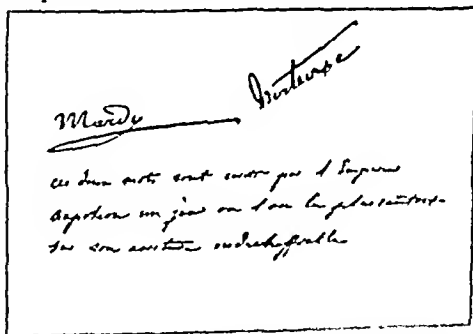 Mardy
ces deux mots sont écrits par l'Empereur
Napoléon un jour ou l'on le plaisantoit
sur son écriture indéchiffrable